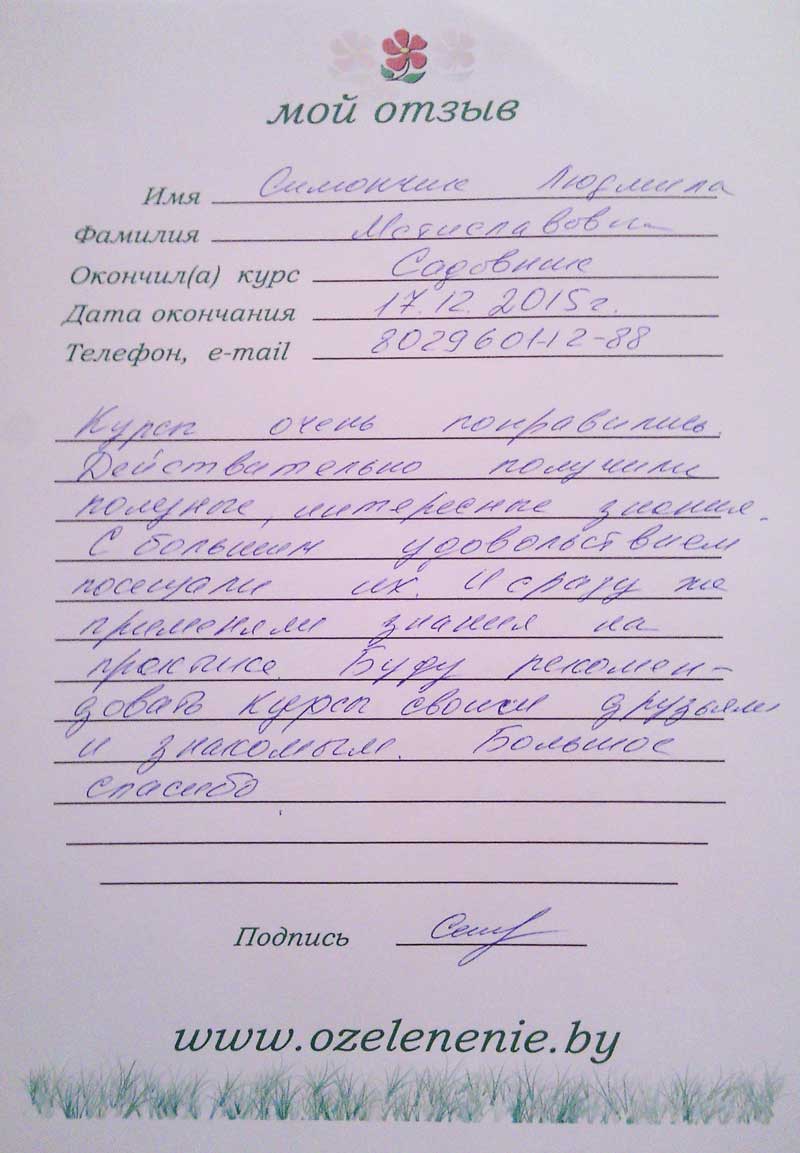 мой отзыв
Имя Симончик Людмила
Фамилия Мстиславовна
Окончил(а) курс Садовник
Дата окончания 17.12.2015г.
Телефон, e-mail 8029601-12-88
Курсы очень понравились.
Действительно получили
полезные, интересные знания.
С большим удовольствием
посещали их. И сразу же
применяли знания на
практике. Буду рекомен-
довать курсы своим друзьям
и знакомым. Большое
спасибо
Подпись
www.ozelenenie.by